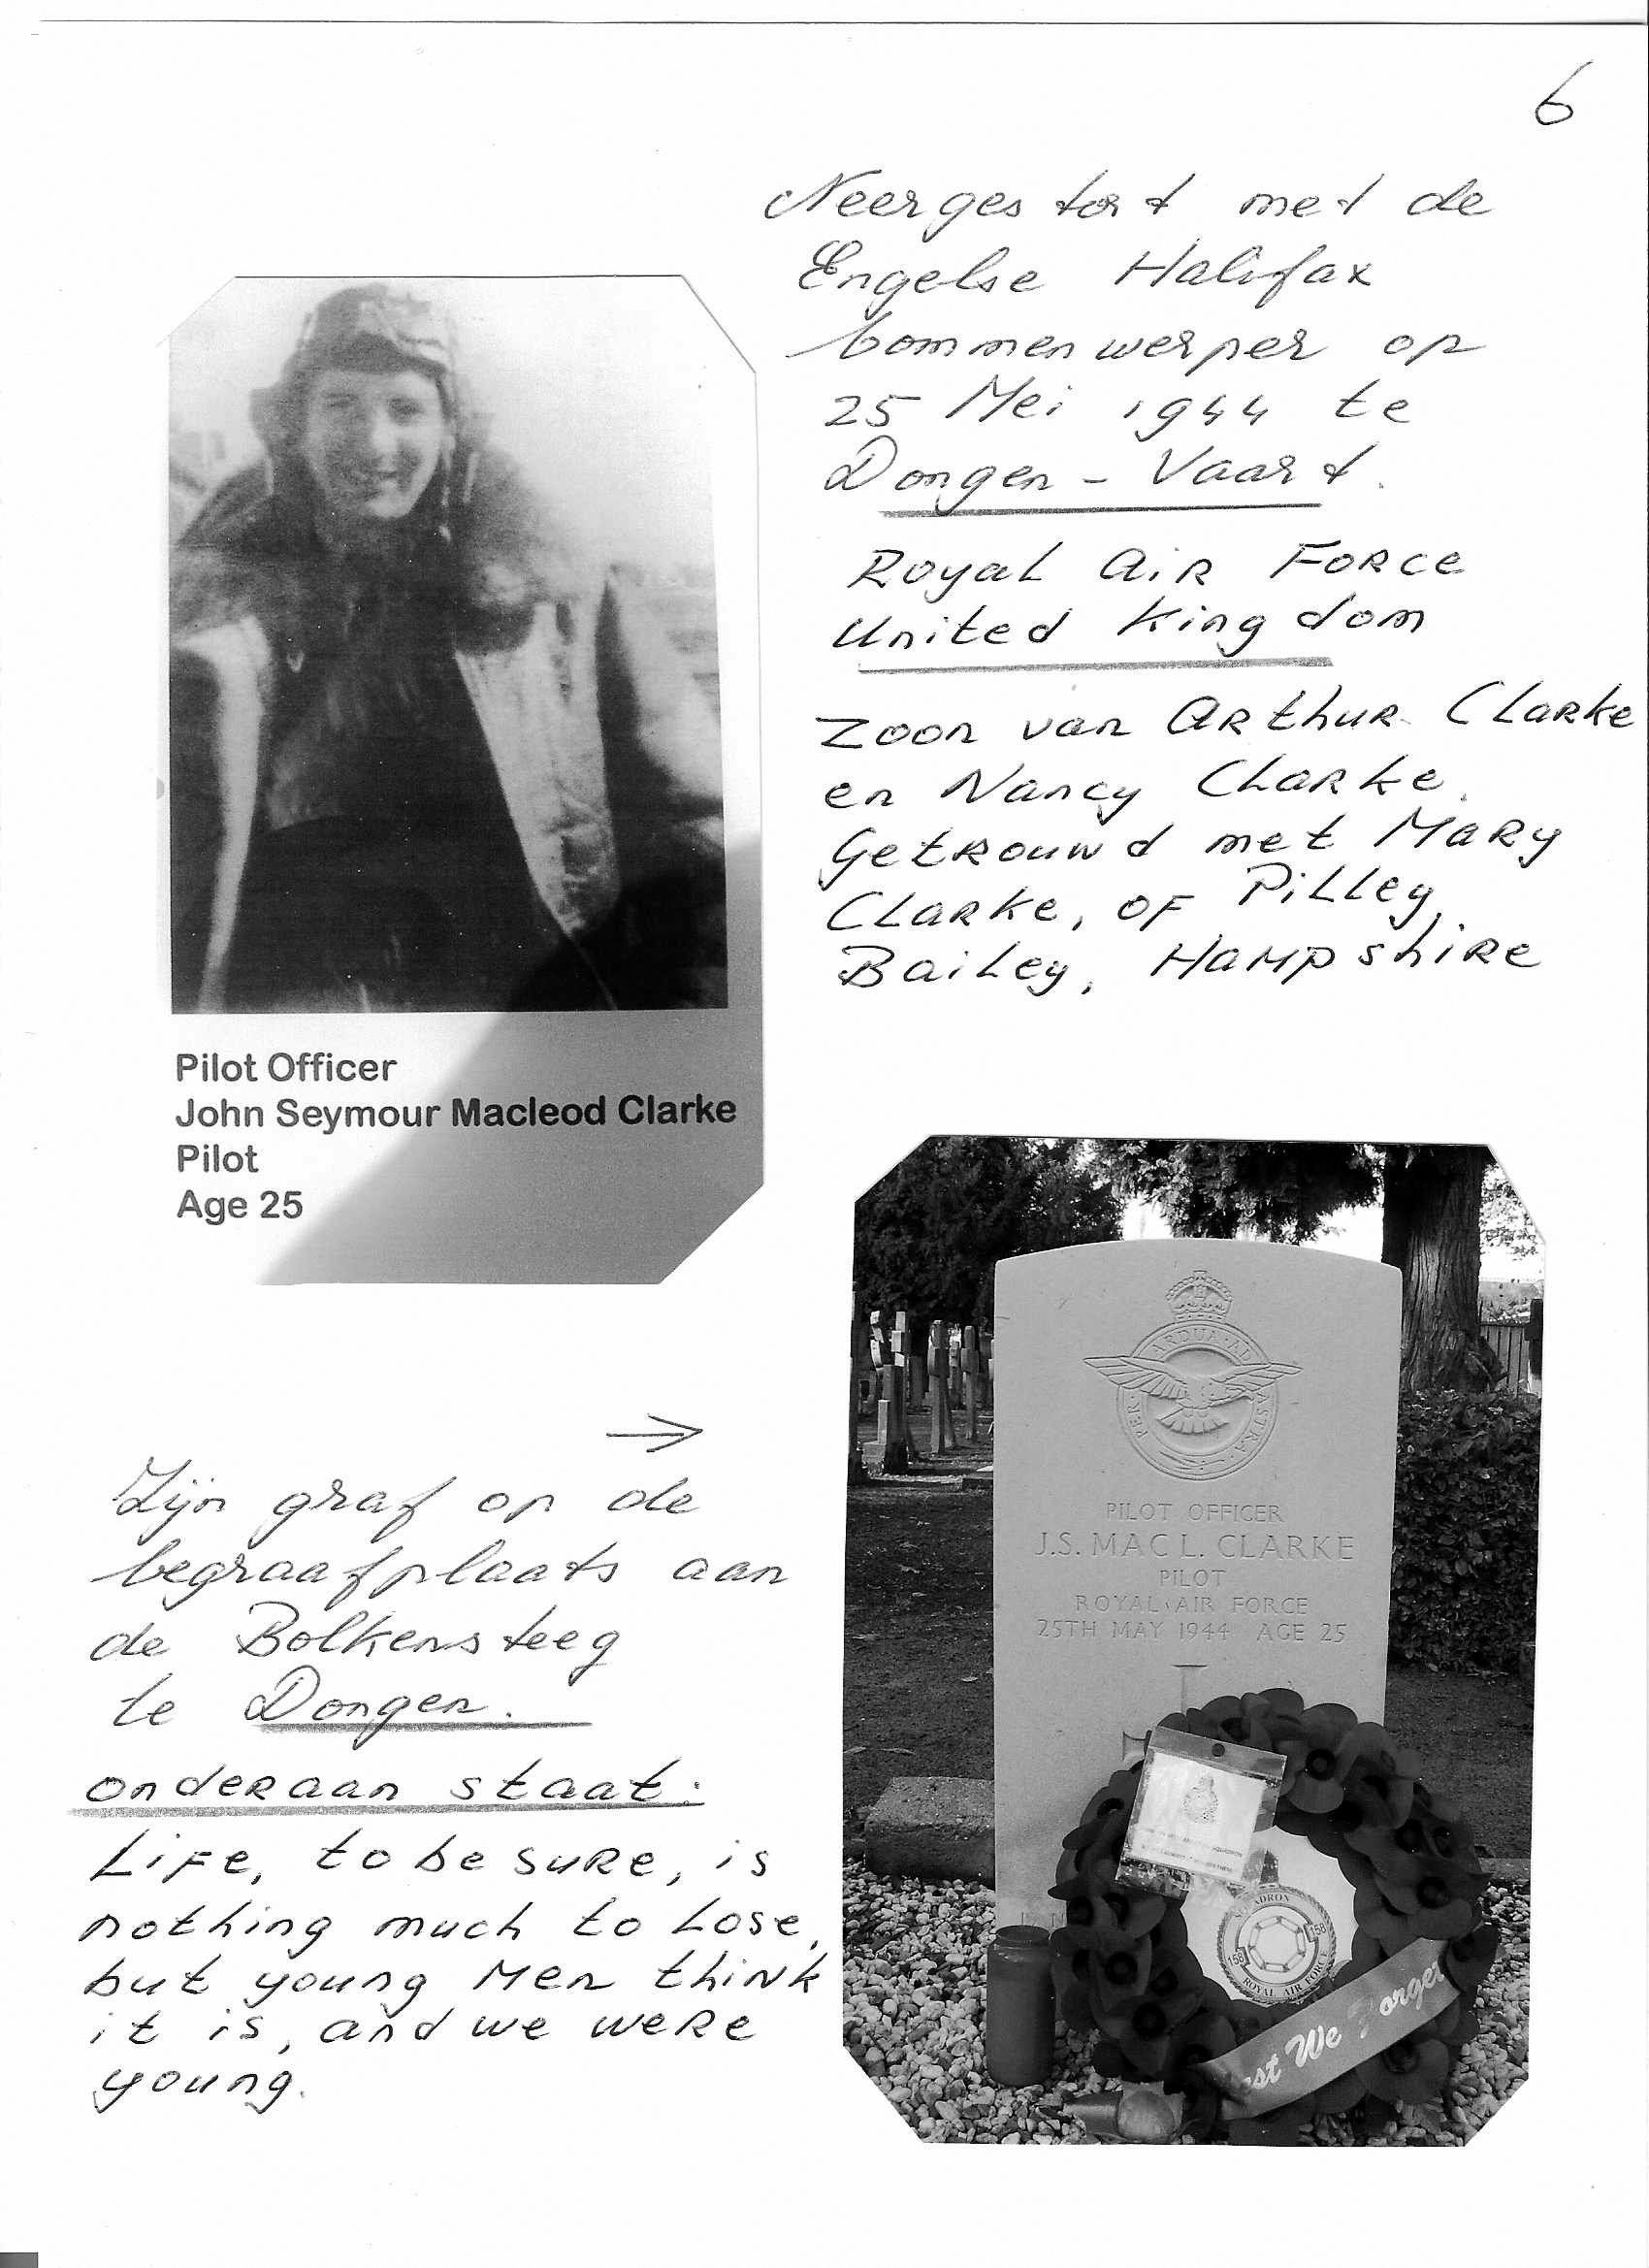 6
Neergestort met de
Engelse Halifax
bommenwerper op
25 Mei 1944 te
Dongen - Vaart.
Royal Air Force
United Kingdom
Zoon van Arthur Clarke
en Nancy Clarke.
Getrouwd met Mary
Clarke, of Pilley
Bailey, Hampshire
Pilot Officer
John Seymour Macleod Clarke
Pilot
Age 25
→
Zijn graf op de
begraafplaats aan
de Bolkensteeg
te Dongen.
onderaan staat:
Life, to be sure, is
nothing much to lose,
but young men think
it is, and we were
young.
PER ARDUA AD ASTRA
PILOT OFFICER
J.S. MACL. CLARKE
PILOT
ROYAL AIR FORCE
25TH MAY 1944 AGE 25
158 158
ROYAL AIR FORCE
We